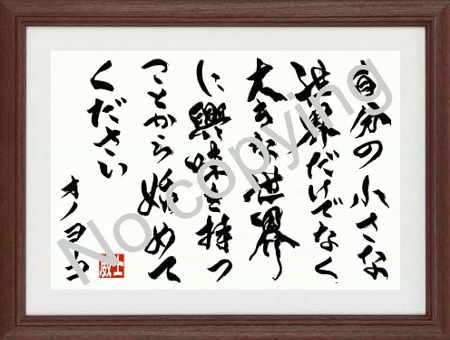 自分の小さな
世界だけでなく
大きな世界
に興味を持つ
ことから始めて
ください
オノヨーコ
威士
No copying